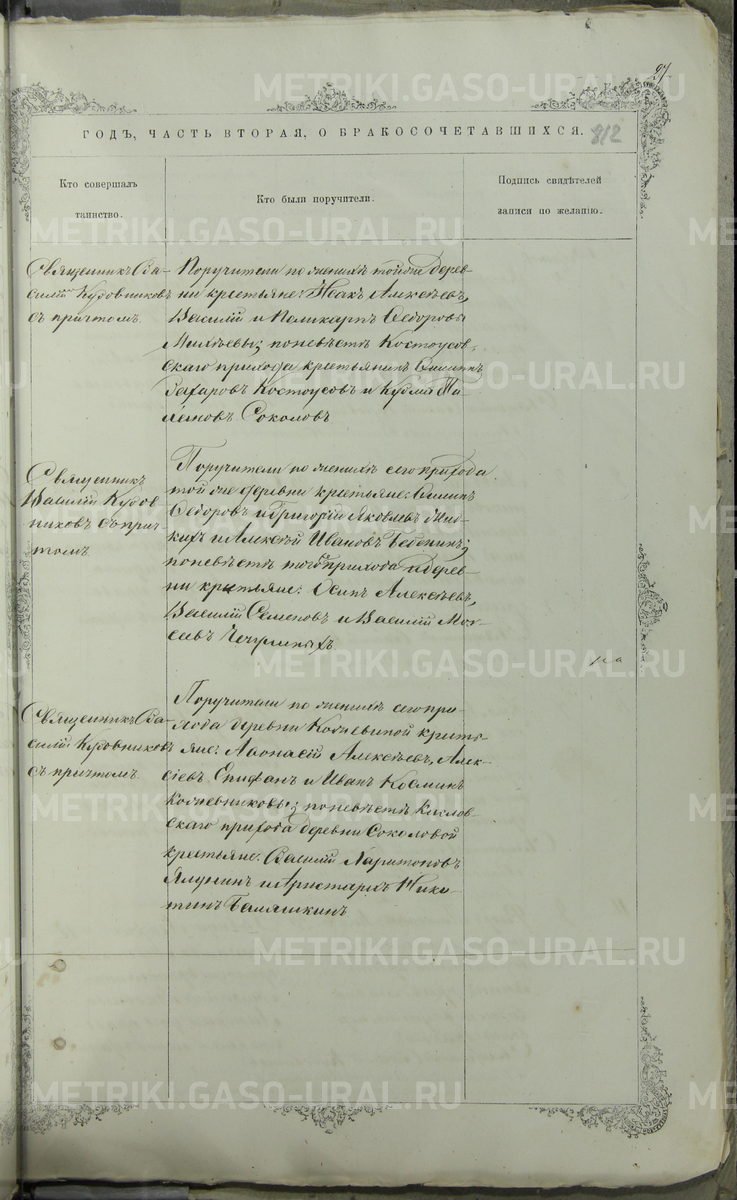 27
ГОДЪ, ЧАСТЬ ВТОРАЯ, О БРАКОСОЧЕТАВШИХСЯ.
812
Кто совершалъ
таинство.
Кто были поручители.
Подпись свидѣтелей
записи по желанію.
Священникъ Ва-
силій Кудовниковъ
съ причтомъ.
Поручители по женихѣ тойже дерев-
ни крестьяне: Исакъ Алексѣевъ,
Василій и Поликарпъ Ѳедоровы
Михѣевы; по невѣстѣ Костоусов-
скаго прихода крестьянинъ
Захаровъ Костоусовъ и Кузма
Соколовъ
Священникъ
Василій Кудов
никовъ съ прич-
томъ.
Поручители по женихѣ сего прихода
той же деревни крестьяне:
Ѳедоровъ и Григорій Яковлевъ
и Алексѣй Ивановъ
по невѣстѣ того прихода и дерев-
ни крестьяне: Осипъ Алексѣевъ,
Василій Семеновъ и Василій Мои-
сѣевъ Чечулины
Священникъ Ва-
силій Кудовниковъ
съ причтомъ.
Поручители по женихѣ сего при-
хода деревни Кожевиной крестья
яне: Аѳонасій Алексѣевъ, Алек-
сѣевъ Епифанъ и Иванъ Козмины
Кожевниковы; по невѣстѣ Кысловс-
скаго прихода деревни Соколовой
крестьяне: Василій Харитоновъ
Ялунинъ и Аристархъ Ники-
тинъ Балашкинъ
METRIKI.GASO-URAL.RU